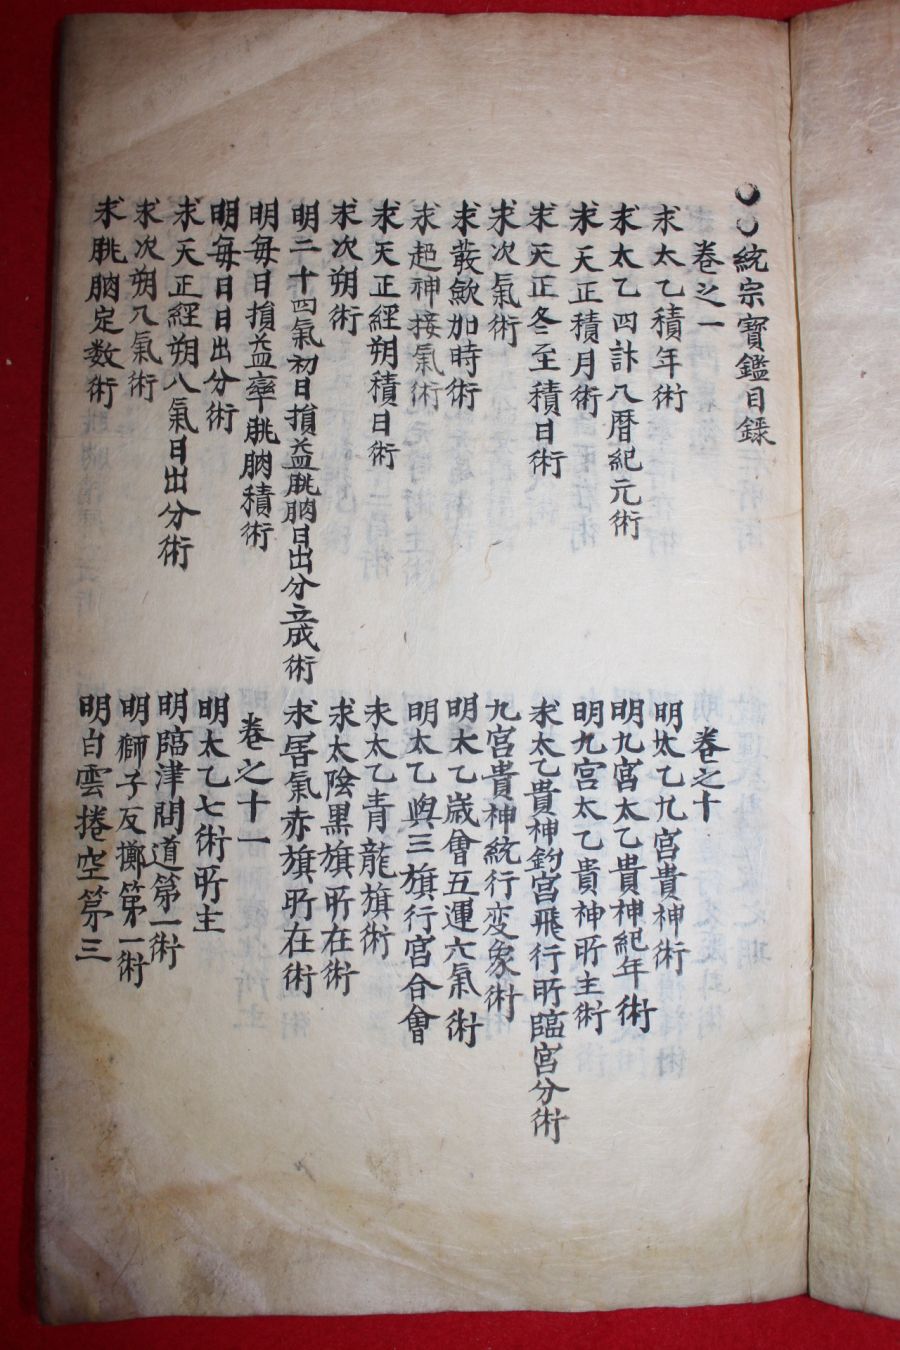 統宗寶鑑目録
卷之一
求太乙積年術
求太乙四計入暦紀元術
求天正積月術
求天正冬至積日術
求次氣術
求菽歛加時術
求超神接氣術
求天正經朔積日術
求次朔術
明二十四氣初日損益朓朒日出分立成術
明每日損益率朓朒積術
明每日日出分術
求天正經朔入氣日出分術
求次朔入氣術
求朓朒定数術
卷之十
明太乙九宮貴神術
明九宮太乙貴神紀年術
明九宮太乙貴神所主術
求太乙貴神鈞宮飛行所臨宮分術
九宮貴神統行変象術
明太乙歳會五運六氣術
明太乙與三旗行宮合會
求太乙青龍旗術
求太陰黒旗所在術
求居氣赤旗所在術
卷之十一
明太乙七術所主
明臨津問道第一術
明獅子反擲第一術
明白雲捲空第三